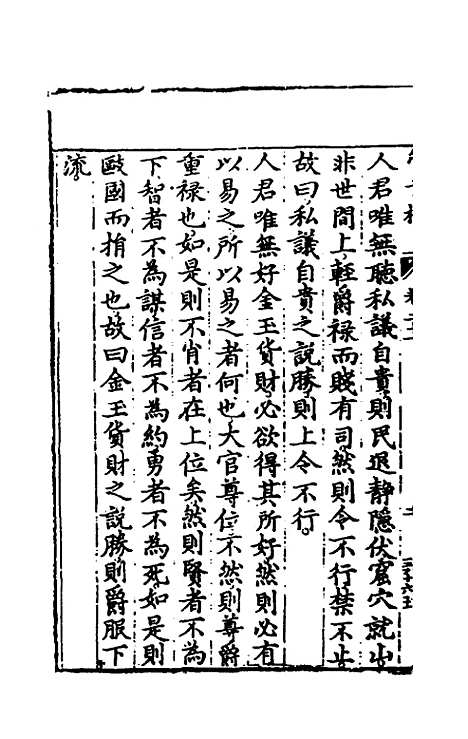 人君唯無聽私議自貴則民退静隱伏窟穴就山
非世間上輕爵禄而賤有司然則令不行禁不止
故曰私議自貴之說勝則上令不行
人君唯無好金玉貨財必欲得其所好然則必有
以易之所以易之者何也大官尊位不然則尊爵
重禄也如是則不肖者在上位矣然則賢者不為
下智者不為謀信者不為約勇者不為死如是則
敺國而捐之也故曰金玉貨財之說勝則爵服下
流